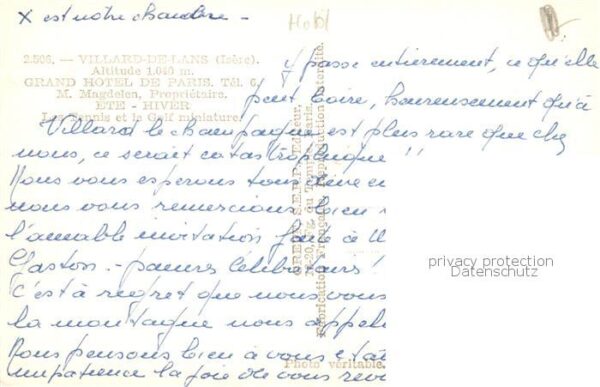 X est notre chambre -
Hotel
2.506. — VILLARD-DE-LANS (Isère).
Altitude 1.040 m.
GRAND HÔTEL DE PARIS. Tél. 6
M. Magdelen, Propriétaire.
ÉTÉ - HIVER
Les Tennis et le Golf miniature
y passe entièrement, ce qu'elle
peut boire, heureusement qu'à
Villard le champagne est plus rare que chez
nous, ce serait catastrophique !!
Nous vous espérons tous
nous vous remercions bien
l'aimable invitation faite à
Gaston. - pauvres célibataires !
C'est à regret que nous vous
la montagne nous
Nous pensons bien à vous
impatience la joie de vous
S.E.P.P. Editeur,
Fabrication Française. Reproduction interdite.
Photo véritable.
privacy protection
Datenschutz